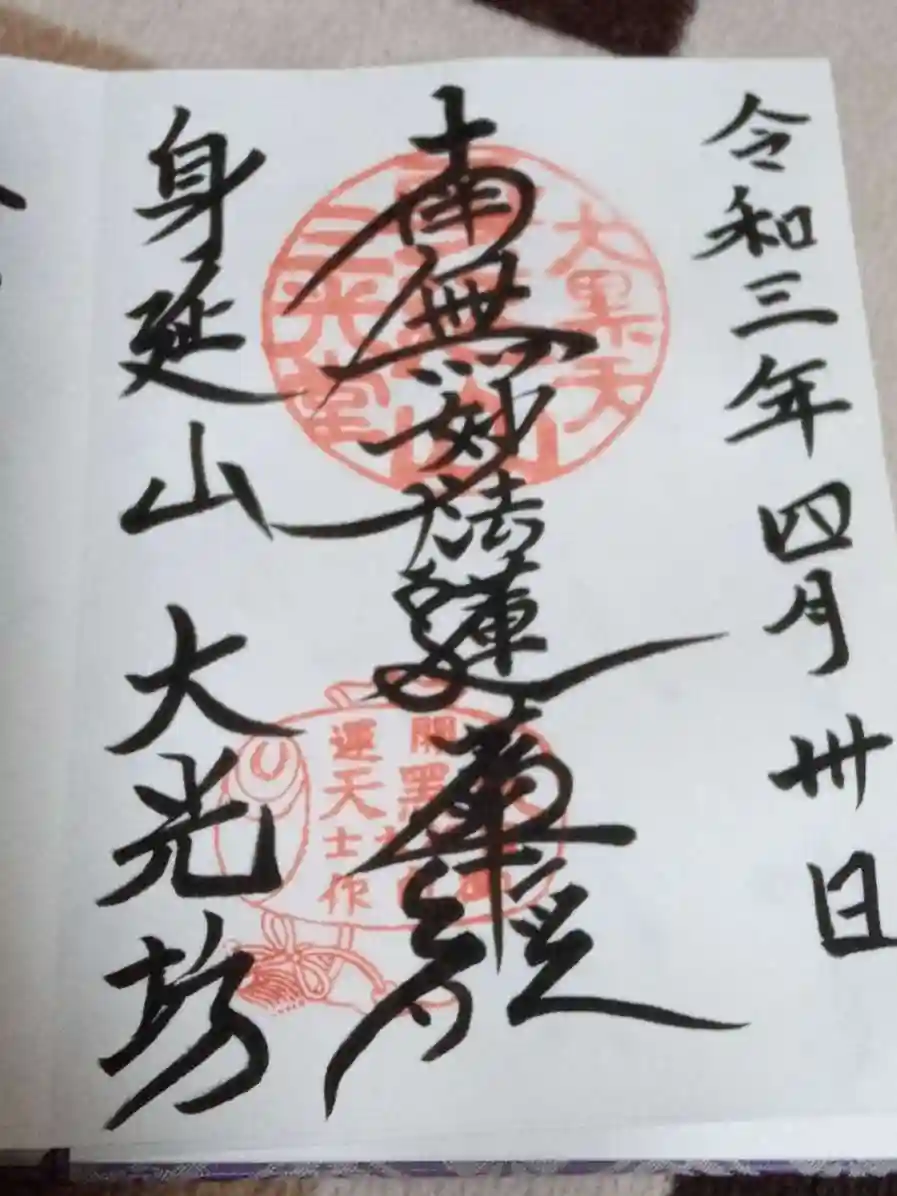 令和三年四月卅日
南無妙法蓮華経
身延山 大光坊
大黒天
三光堂
開
運